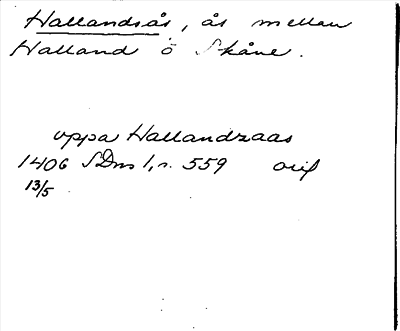 Hallandsås, ås mellan
Halland o Skåne.
uppa Hallandzaas
1406 SDns 1, n. 559 orig
13/5